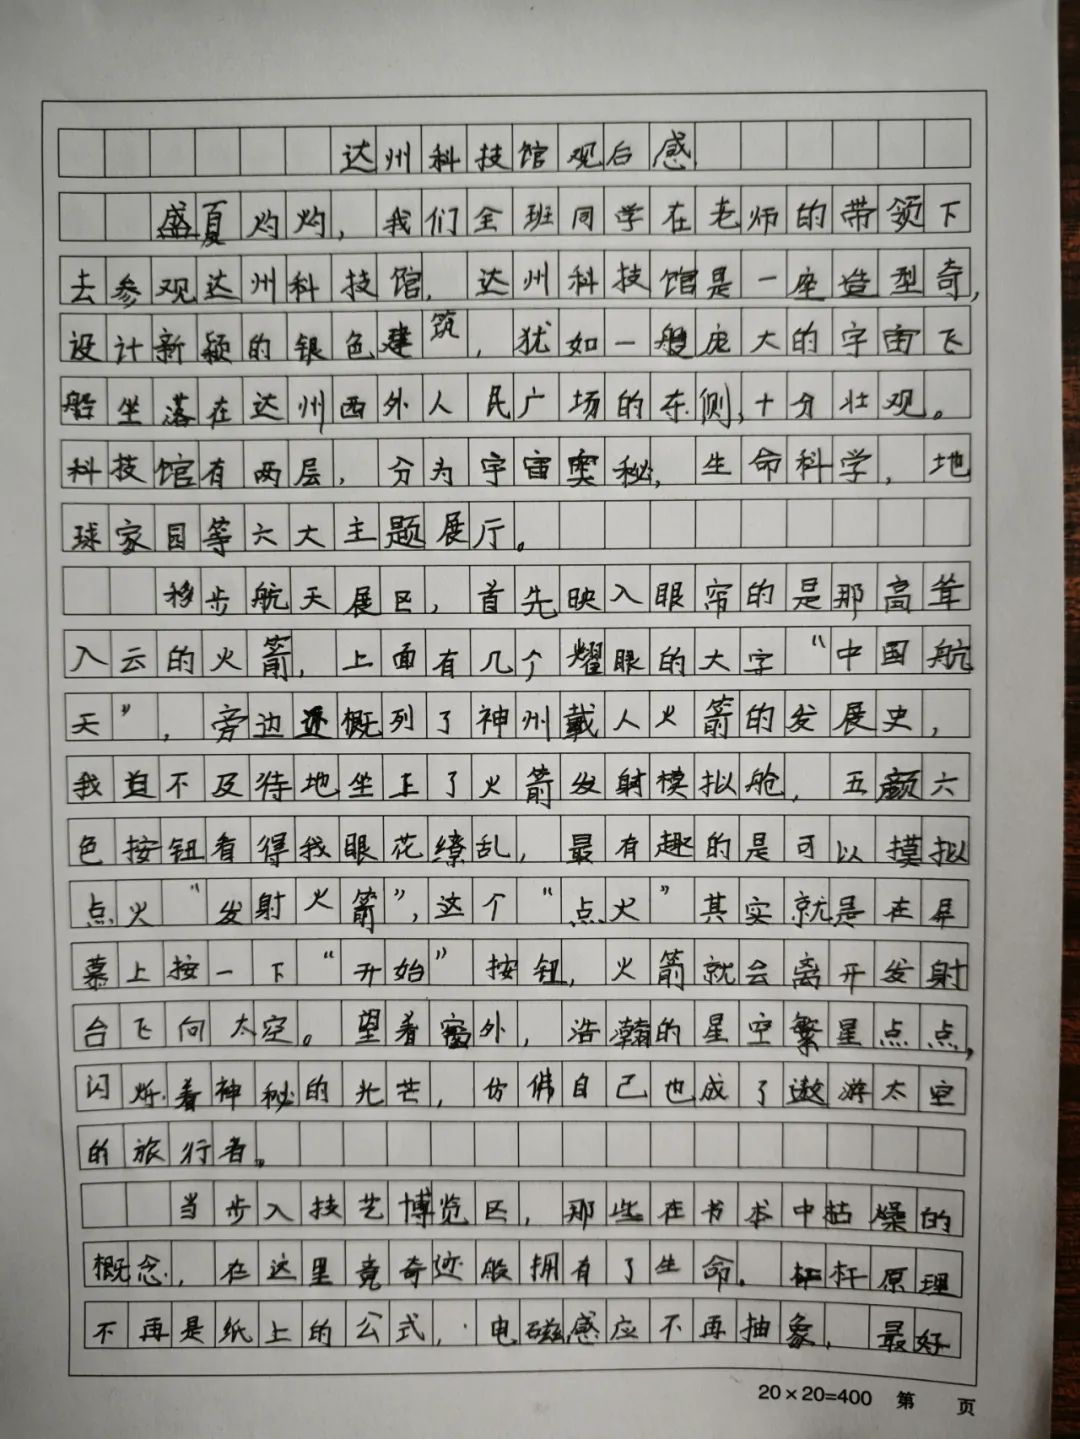 达州科技馆观后感
盛夏灼灼，我们全班同学在老师的带领下
去参观达州科技馆，达州科技馆是一座造型奇，
设计新颖的银色建筑，犹如一艘庞大的宇宙飞
船坐落在达州西外人民广场的东侧，十分壮观。
科技馆有两层，分为宇宙奥秘，生命科学，地
球家园等六大主题展厅。
移步航天展区，首先映入眼帘的是那高耸
入云的火箭，上面有几个耀眼的大字“中国航
天”，旁边还概列了神州载人火箭的发展史，
我迫不及待地坐上了火箭发射模拟舱，五颜六
色按钮看得我眼花缭乱，最有趣的是可以摸拟
点火“发射火箭”，这个“点火”其实就是在屏
幕上按一下“开始”按钮，火箭就会离开发射
台飞向太空。望着窗外，浩瀚的星空繁星点点，
闪烁着神秘的光芒，仿佛自己也成了遨游太空
的旅行者。
当步入技艺博览区，那些在书本中枯燥的
概念，在这里竟奇迹般拥有了生命。杠杆原理
不再是纸上的公式，电磁感应不再抽象，最好
20×20=400 第 页